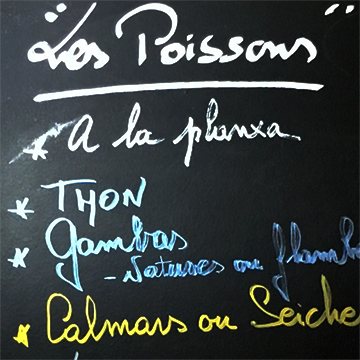 "Les Poissons"
* A la planxa
* THON
* Gambas
- Natures ou flambé
* Calmars ou Seiche